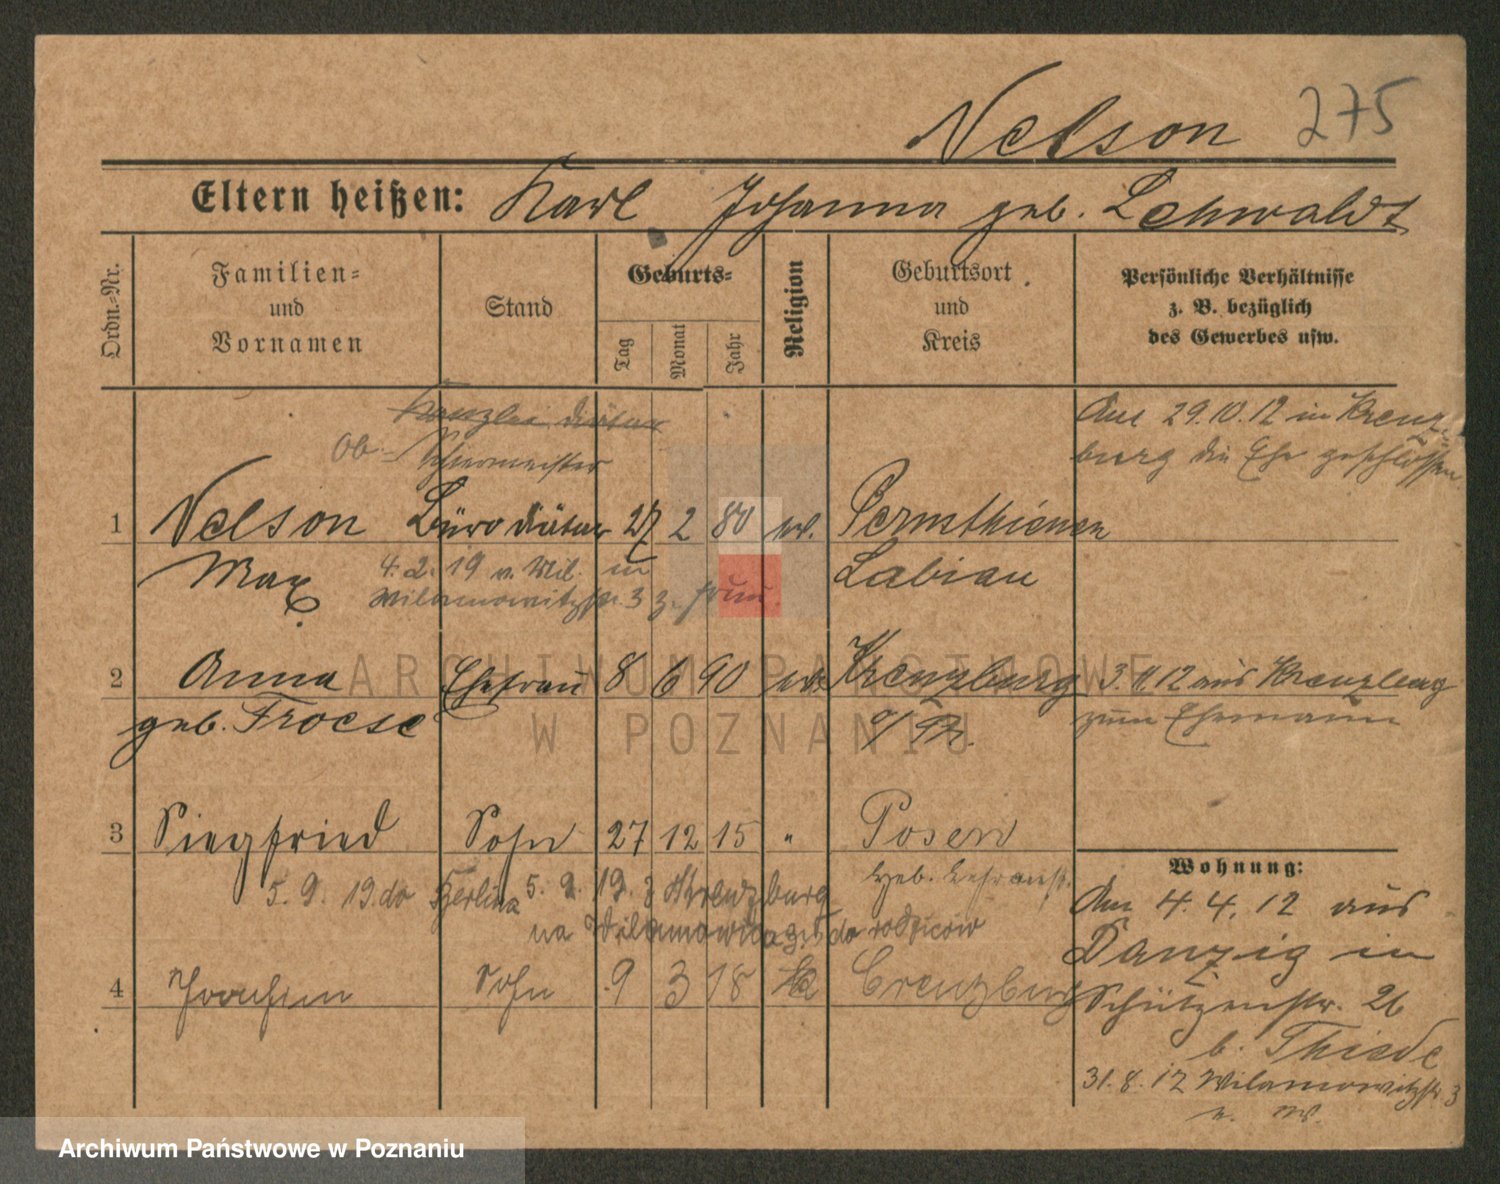 Nelson 275
Eltern heißen: Karl Johanna geb. Lehwaldt
Ordn.-Nr.
Familien-
und
Vornamen
Stand
Geburts-
Tag
Monat
Jahr
Religion
Geburtsort
und
Kreis
Persönliche Verhältnisse
z. B. bezüglich
des Gewerbes usw.
Kanzlei diätar
Ob-
Am 29.10.12 in Kreuz-
burg die Ehe geschlossen
1 Nelson Büro diätar 27 2 80 ev.
Max Labiau
4. 2. 19 v. Mil. in
Wilamowitzstr. 3 z. Frau
2 Anna Ehefrau 8 6 90 ev. Kreuzburg 3.11.12 aus Kreuzburg
geb. Froese o/Pr. zum Ehemann
3 Siegfried Sohn 27 12 15 " Posen
5. 9. 19. do Berlina 5. 9. 19. z Kreuzburg
na Wilamowica 3 do rodziców
4 Joachim Sohn 9 3 18 Creuzburg
Wohnung:
Am 4. 4. 12 aus
Danzig in
Schützenstr. 26
b. Thiede
31. 8. 12 Wilamowitzstr. 3
ARCHIWUM PAŃSTWOWE
W POZNANIU
Archiwum Państwowe w Poznaniu